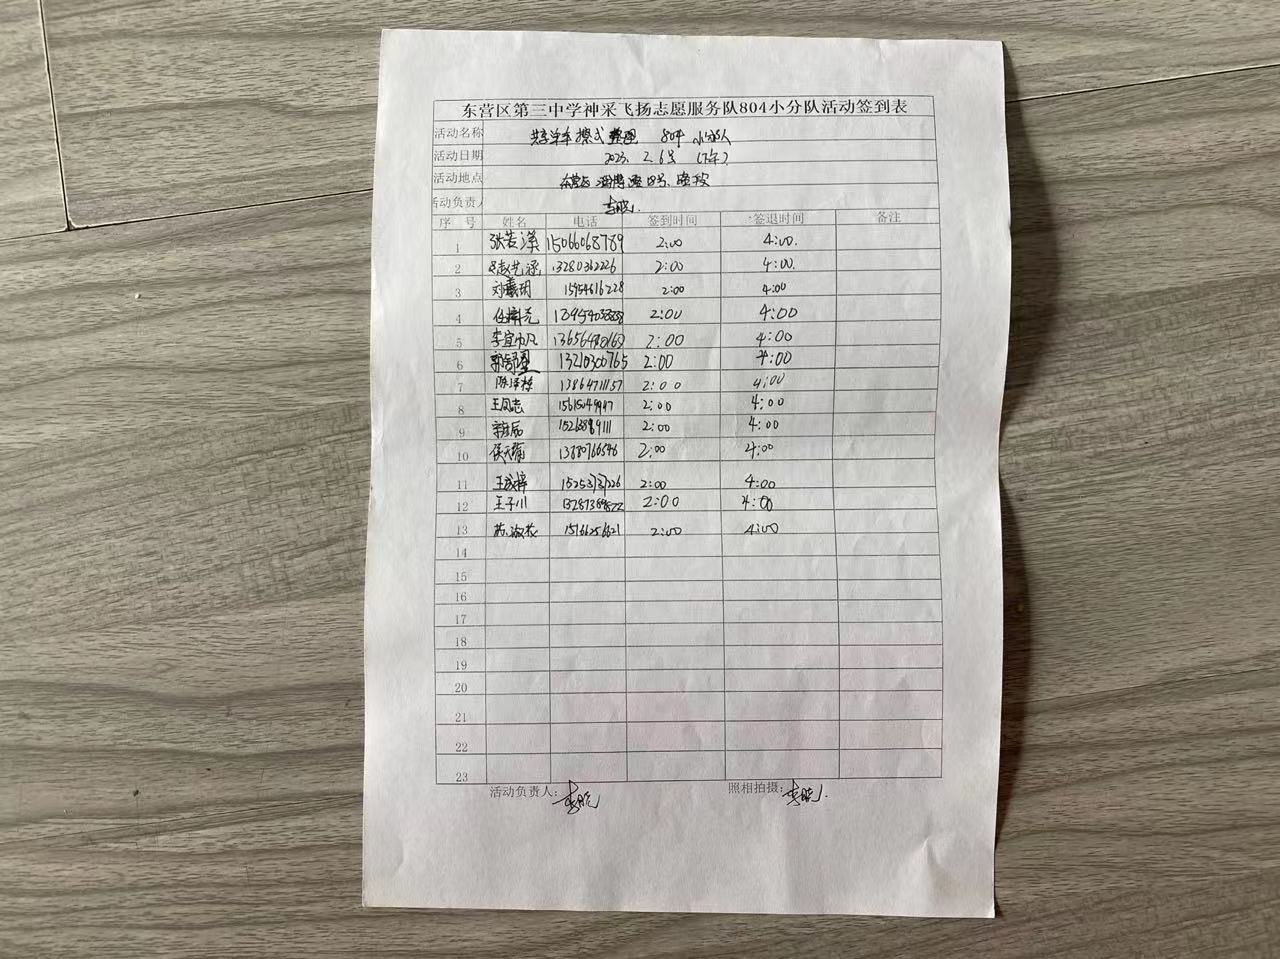 东营区第三中学神采飞扬志愿服务队804小分队活动签到表
活动名称 共享单车擦式整理 804 小分队
活动日期 2023. 2. 6号 (下午)
活动地点 东营区 路段
活动负责人 李晓
序 号 姓名 电话 签到时间 签退时间 备注
1 张若溪 15066068789 2:00 4:00.
2 赵艺涵 13280362226 2:00 4:00.
3 刘曦玥 15954616228 2:00 4:00
4 任梓尧 2:00 4:00
5 李宜凡 2:00 4:00
6 13210300765 2:00 4:00
7 13864711157 2:00 4:00
8 王凤志 2:00 4:00
9 2:00 4:00
10 2:00 4:00
11 王彧梓 2:00 4:00
12 王子川 2:00 4:00
13 2:00 4:00
14
15
16
17
18
19
20
21
22
23
活动负责人: 李晓 照相拍摄: 李晓